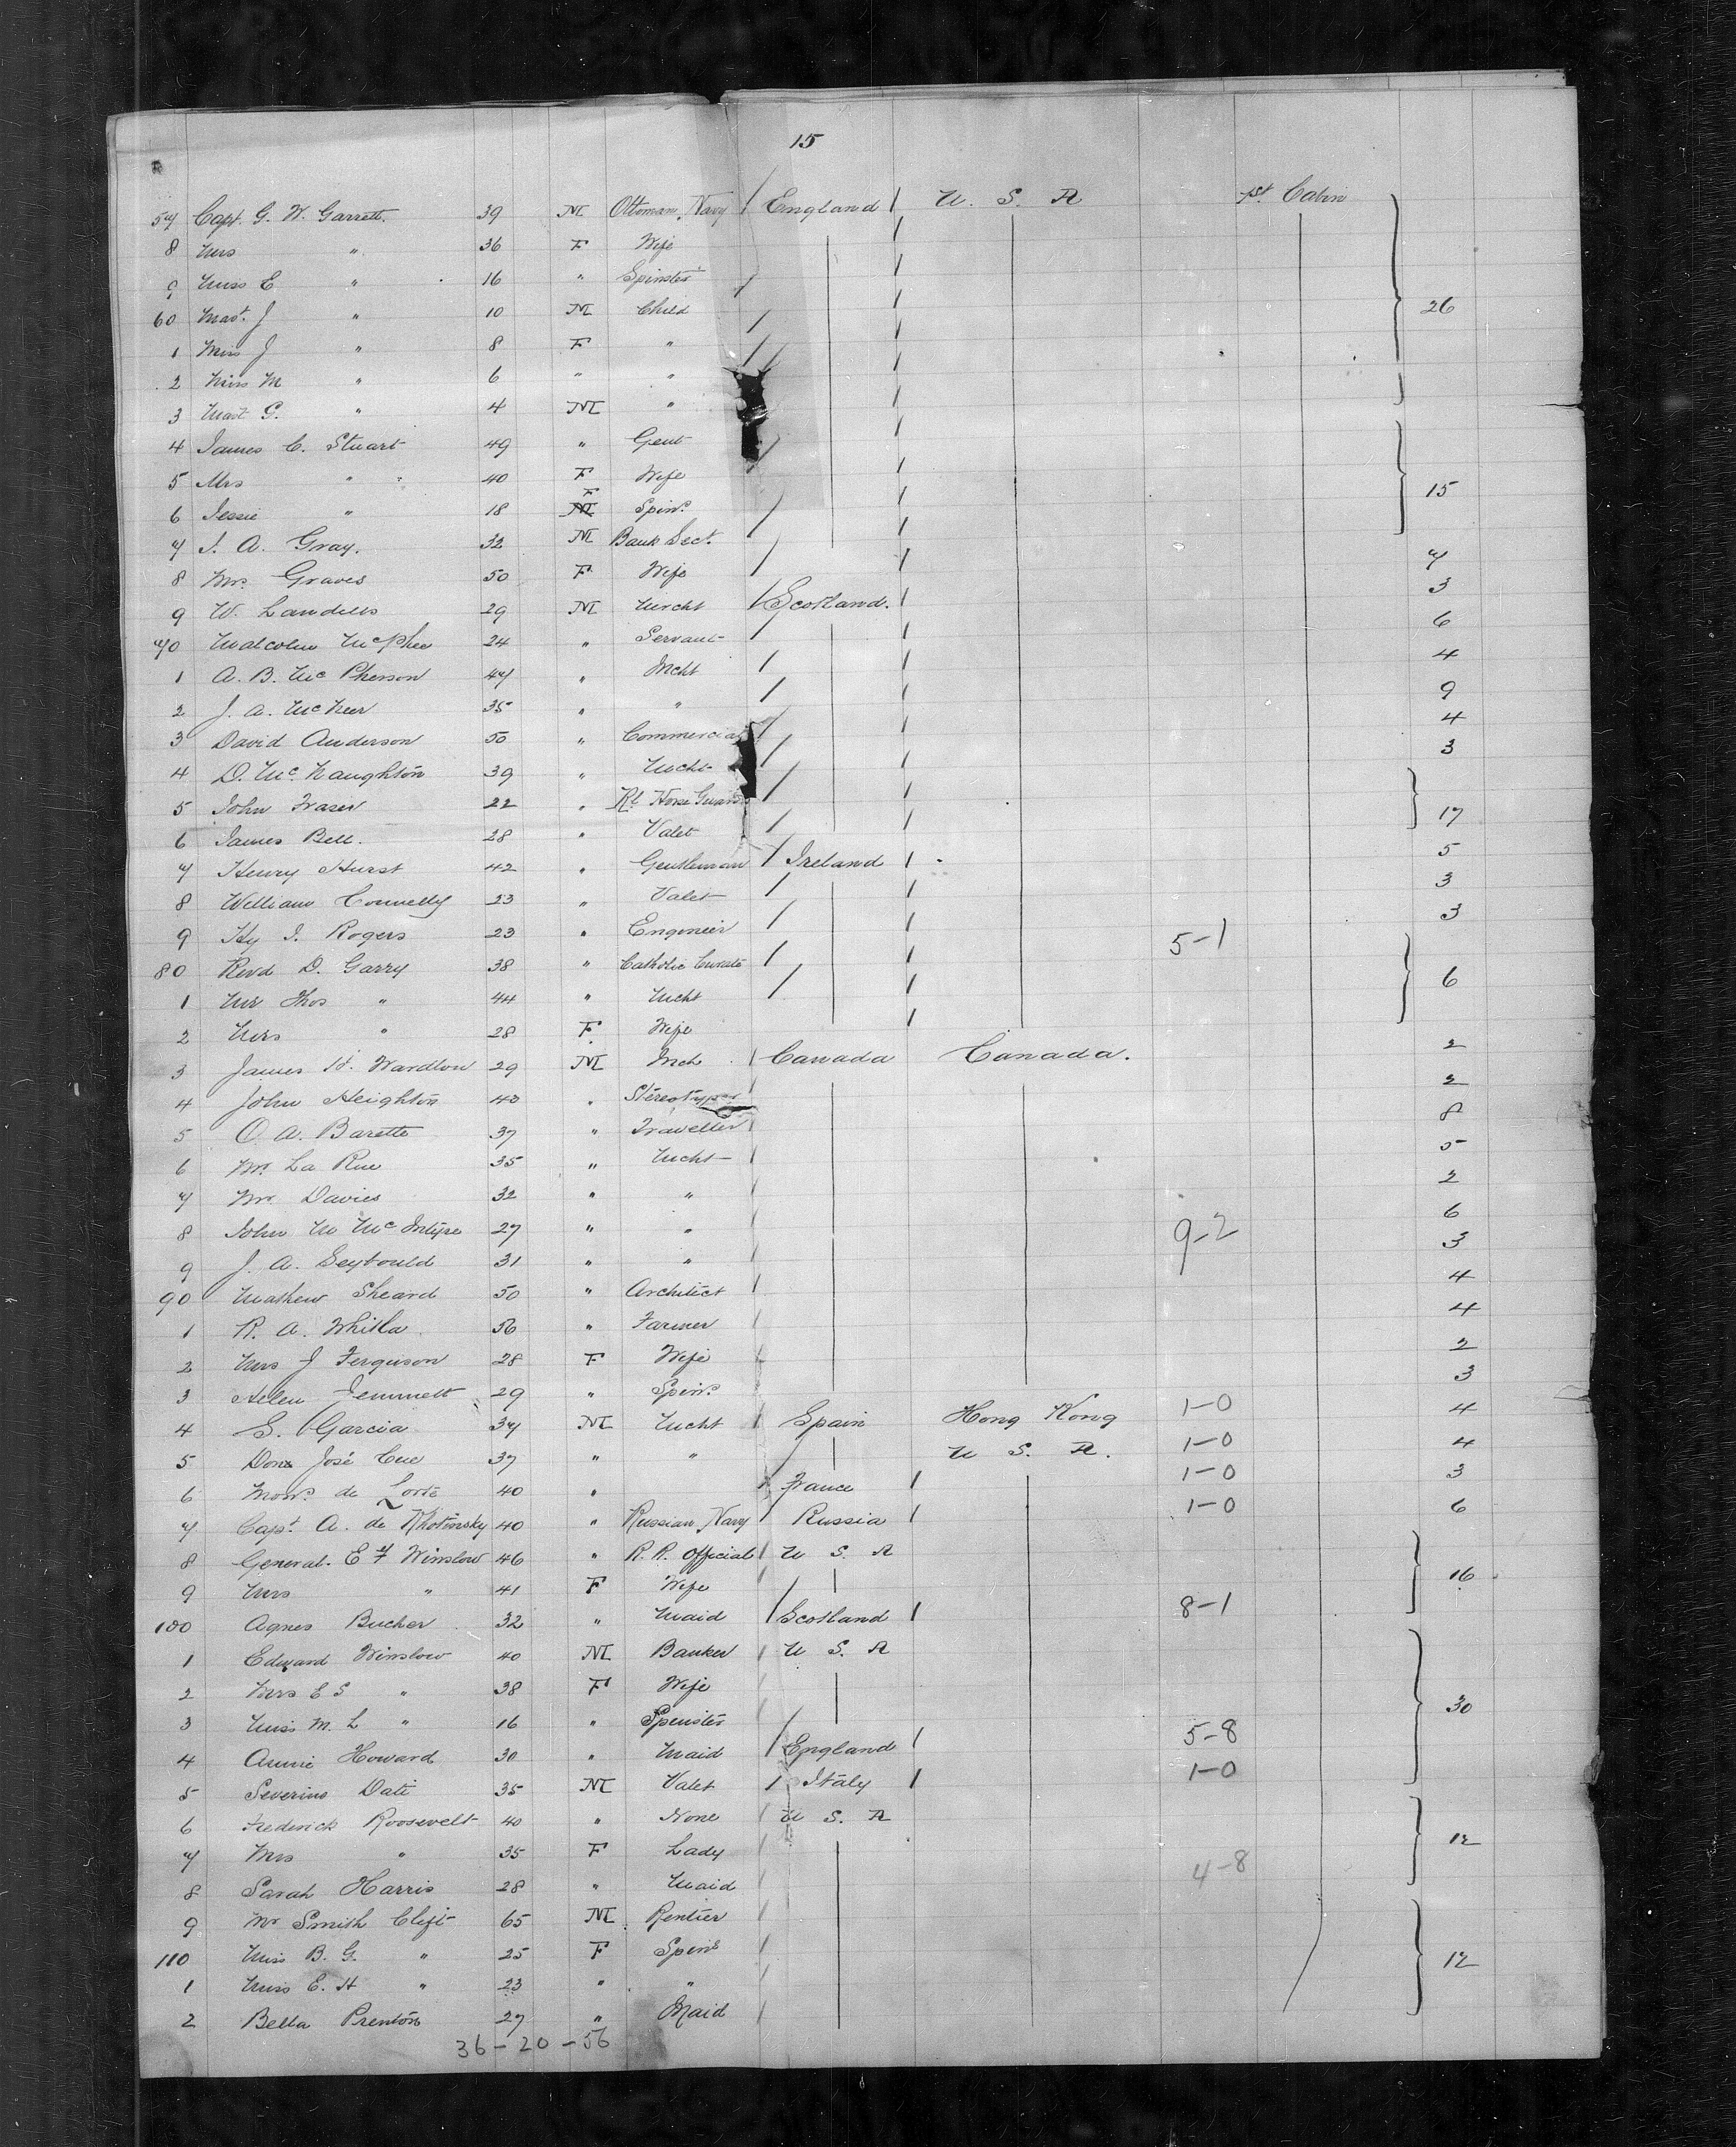 15
57 Capt. G. W. Garrett. 39 M Ottoman Navy England U. S. A 1st Cabin
8 Mrs " 36 F Wife
9 Miss E " 16 " Spinster
60 Mast. J " 10 M Child 26
1 Miss J " 8 F "
2 Miss M " 6 " "
3 Mast G. " 4 M "
4 James C. Stuart 49 " Gent
5 Mrs " 40 F Wife 15
6 Jessie " 18 F Spinr.
7 J. A. Gray. 32 M Bank Sect. 7
8 Mrs. Graves 50 F Wife 3
9 W. Landells 29 M Mercht Scotland. 6
70 Malcolm McPhee 24 " Servant 4
1 A. B. McPherson 47 " Mcht 9
2 J. A. 35 " " 4
3 David Anderson 50 " Commercial 3
4 D. McNaughton 39 " Mcht
5 John Fraser 22 " Rl Horse Guards 17
6 James Bell. 28 " Valet
7 Henry Hurst 42 " Gentleman Ireland 5
8 William Connelly 23 " Valet 3
9 Hy J. Rogers 23 " Engineer 5-1 3
80 Revd D. Garry 38 " Catholic Curate
1 Mr Thos " 44 " Mcht 6
2 Mrs " 28 F. Wife
3 James H. Wardlow 29 M Mch Canada Canada. 2
4 John Heighton 40 " Stereotyper 2
5 O. A. Barette 37 " Traveller 8
6 Mr. La Rue 35 " Mcht 5
7 Mr. Davies 32 " " 2
8 John M McIntyre 27 " " 9-2 6
9 J. A. Seybould 31 " " 3
90 Mathew Sheard 50 " Architect 4
1 R. A. Whitla 56 " Farmer 4
2 Mrs J Ferguson 28 F Wife 2
3 Helen Jemmett 29 " Spinr. 3
4 S. Garcia 37 M Mcht Spain Hong Kong 1-0 4
5 Don José Cue 37 " " U. S. A. 1-0 4
6 Monsr. de 40 " France 1-0 3
7 Capt. A. de Khotinsky 40 " Russian Navy Russia 1-0 6
8 General. E F Winslow 46 " R. R. Official U. S. A
9 Mrs " 41 F Wife 16
100 Agnes Bucher 32 " Maid Scotland 8-1
1 Edward Winslow 40 M Banker U. S. A
2 Mrs E S " 38 F Wife
3 Miss M. L " 16 " Spinster 30
4 Annie Howard 30 " Maid England 5-8
5 Severino Dati 35 M Valet Italy 1-0
6 Frederick Roosevelt 40 " None U. S. A
7 Mrs " 35 F Lady 12
8 Sarah Harris 28 " Maid 4-8
9 Mr Smith Clift 65 M Rentier
110 Miss B. G. " 25 F Spinr
1 Miss E. H " 23 " " 12
2 Bella Prenton 27 " Maid
36-20-56